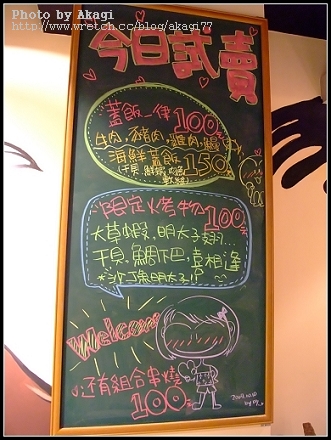 Photo by Akagi
http://www.wretch.cc/blog/akagi77
今日試賣
蓋飯一律100元
牛肉,豬肉,雞肉,鰻
海鮮蓋飯150元
限定火考物100元
大草蝦,明太子翅...
干貝,鯛下巴,喜相逢
*沙丁魚明太子!?
Welcome
還有組合串燒
100元